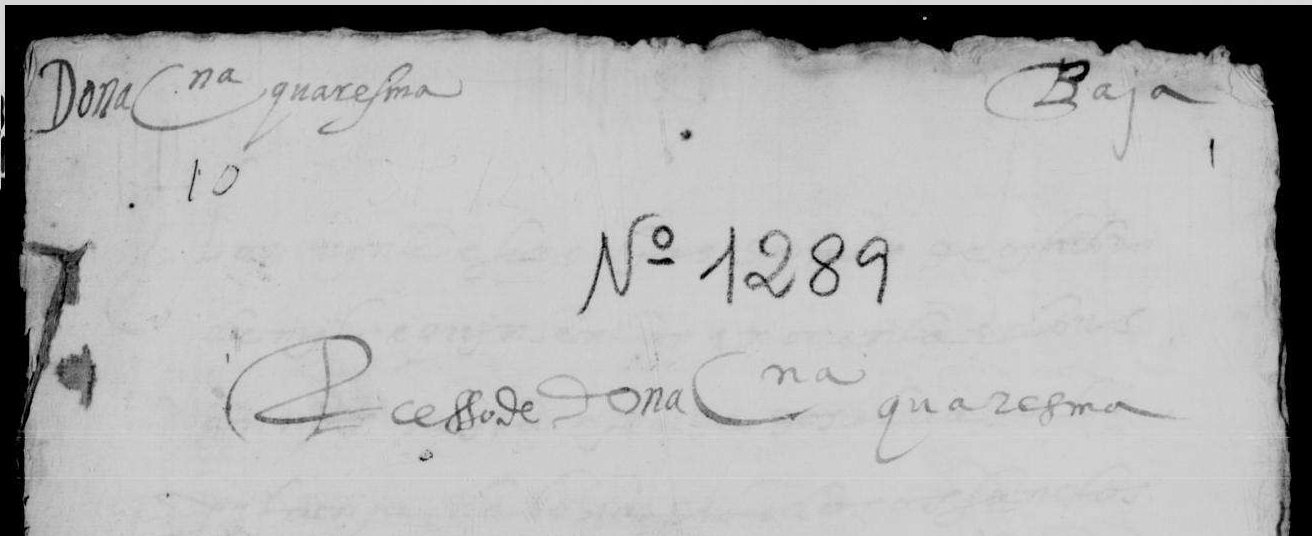 Dona Cna quaresma Baja
1
10
Nº 1289
Pcesso de Dona Cna quaresma